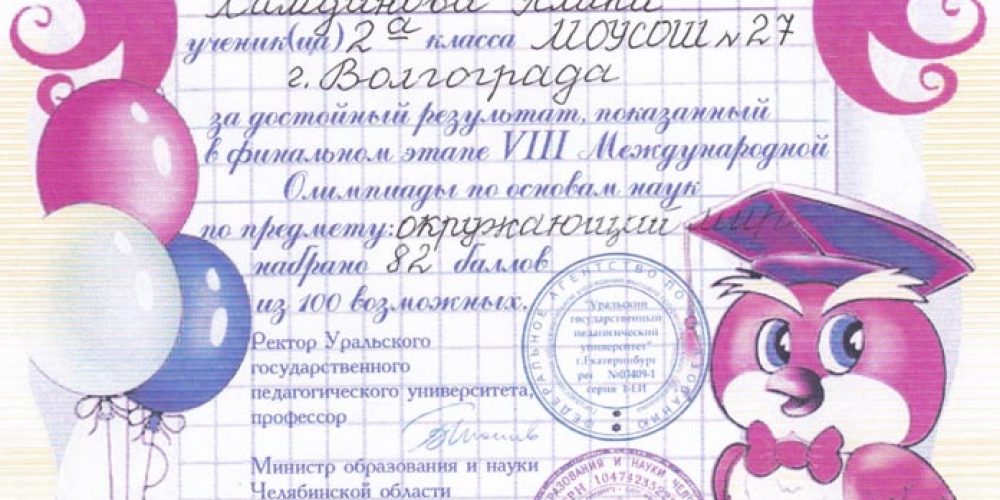 ученик(ца) 2а класса МОУСОШ №27
г. Волгограда
за достойный результат, показанный
в финальном этапе VIII Международной
Олимпиады по основам наук
по предмету: окружающий мир
набрано 82 баллов
из 100 возможных.
Ректор Уральского
государственного
педагогического университета,
профессор
Министр образования и науки
Челябинской области
ФЕДЕРАЛЬНОЕ АГЕНТСТВО ПО ОБРАЗОВАНИЮ
"Уральский
государственный
педагогический
университет"
г.Екатеринбург
рег №03409-1
серия 1-ЕИ